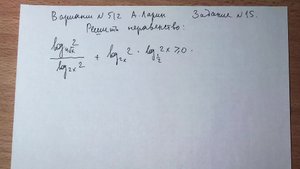 Вариант N 512 А. Ларин Задание N 15.
Решить неравенство:
log_{4√x} 2 / log_{2x} 2 + log_{2x} 2 · log_{1/2} 2x ≥ 0.